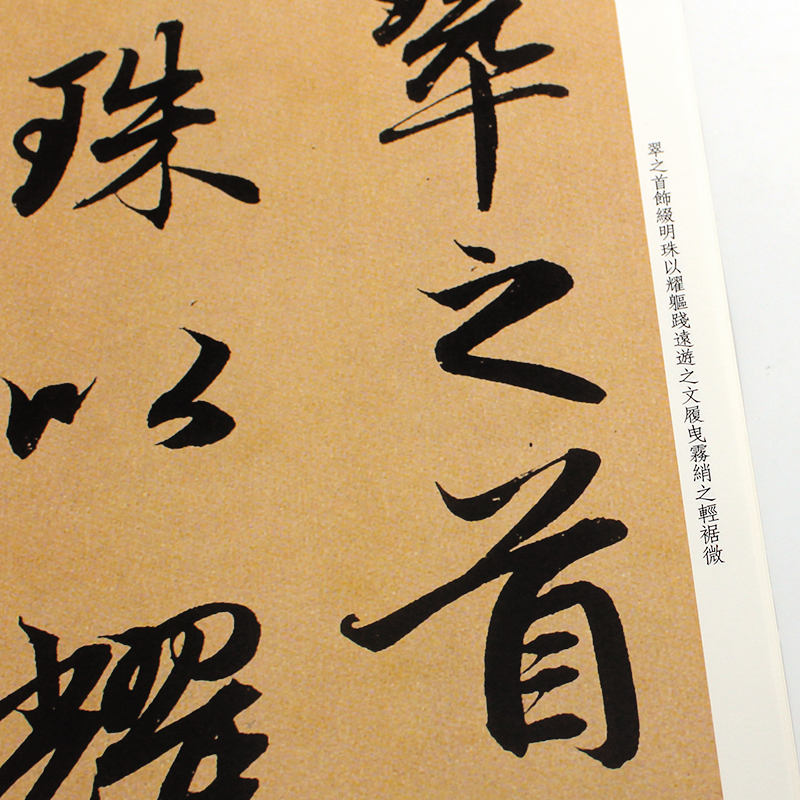 翠之首飾綴明珠以耀軀踐遠遊之文履曳霧綃之輕裾微
翠之首
珠以耀